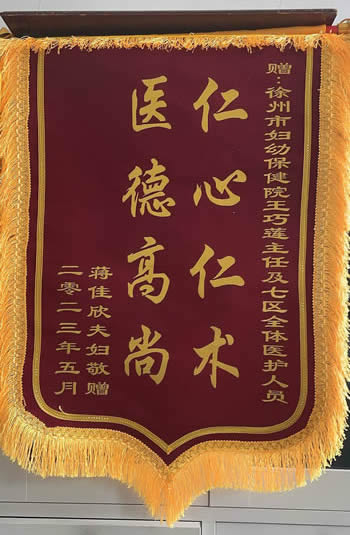 赠:徐州市妇幼保健院王巧莲主任及七区全体医护人员
仁心仁术
医德高尚
蒋佳欣夫妇敬赠
二零二三年五月